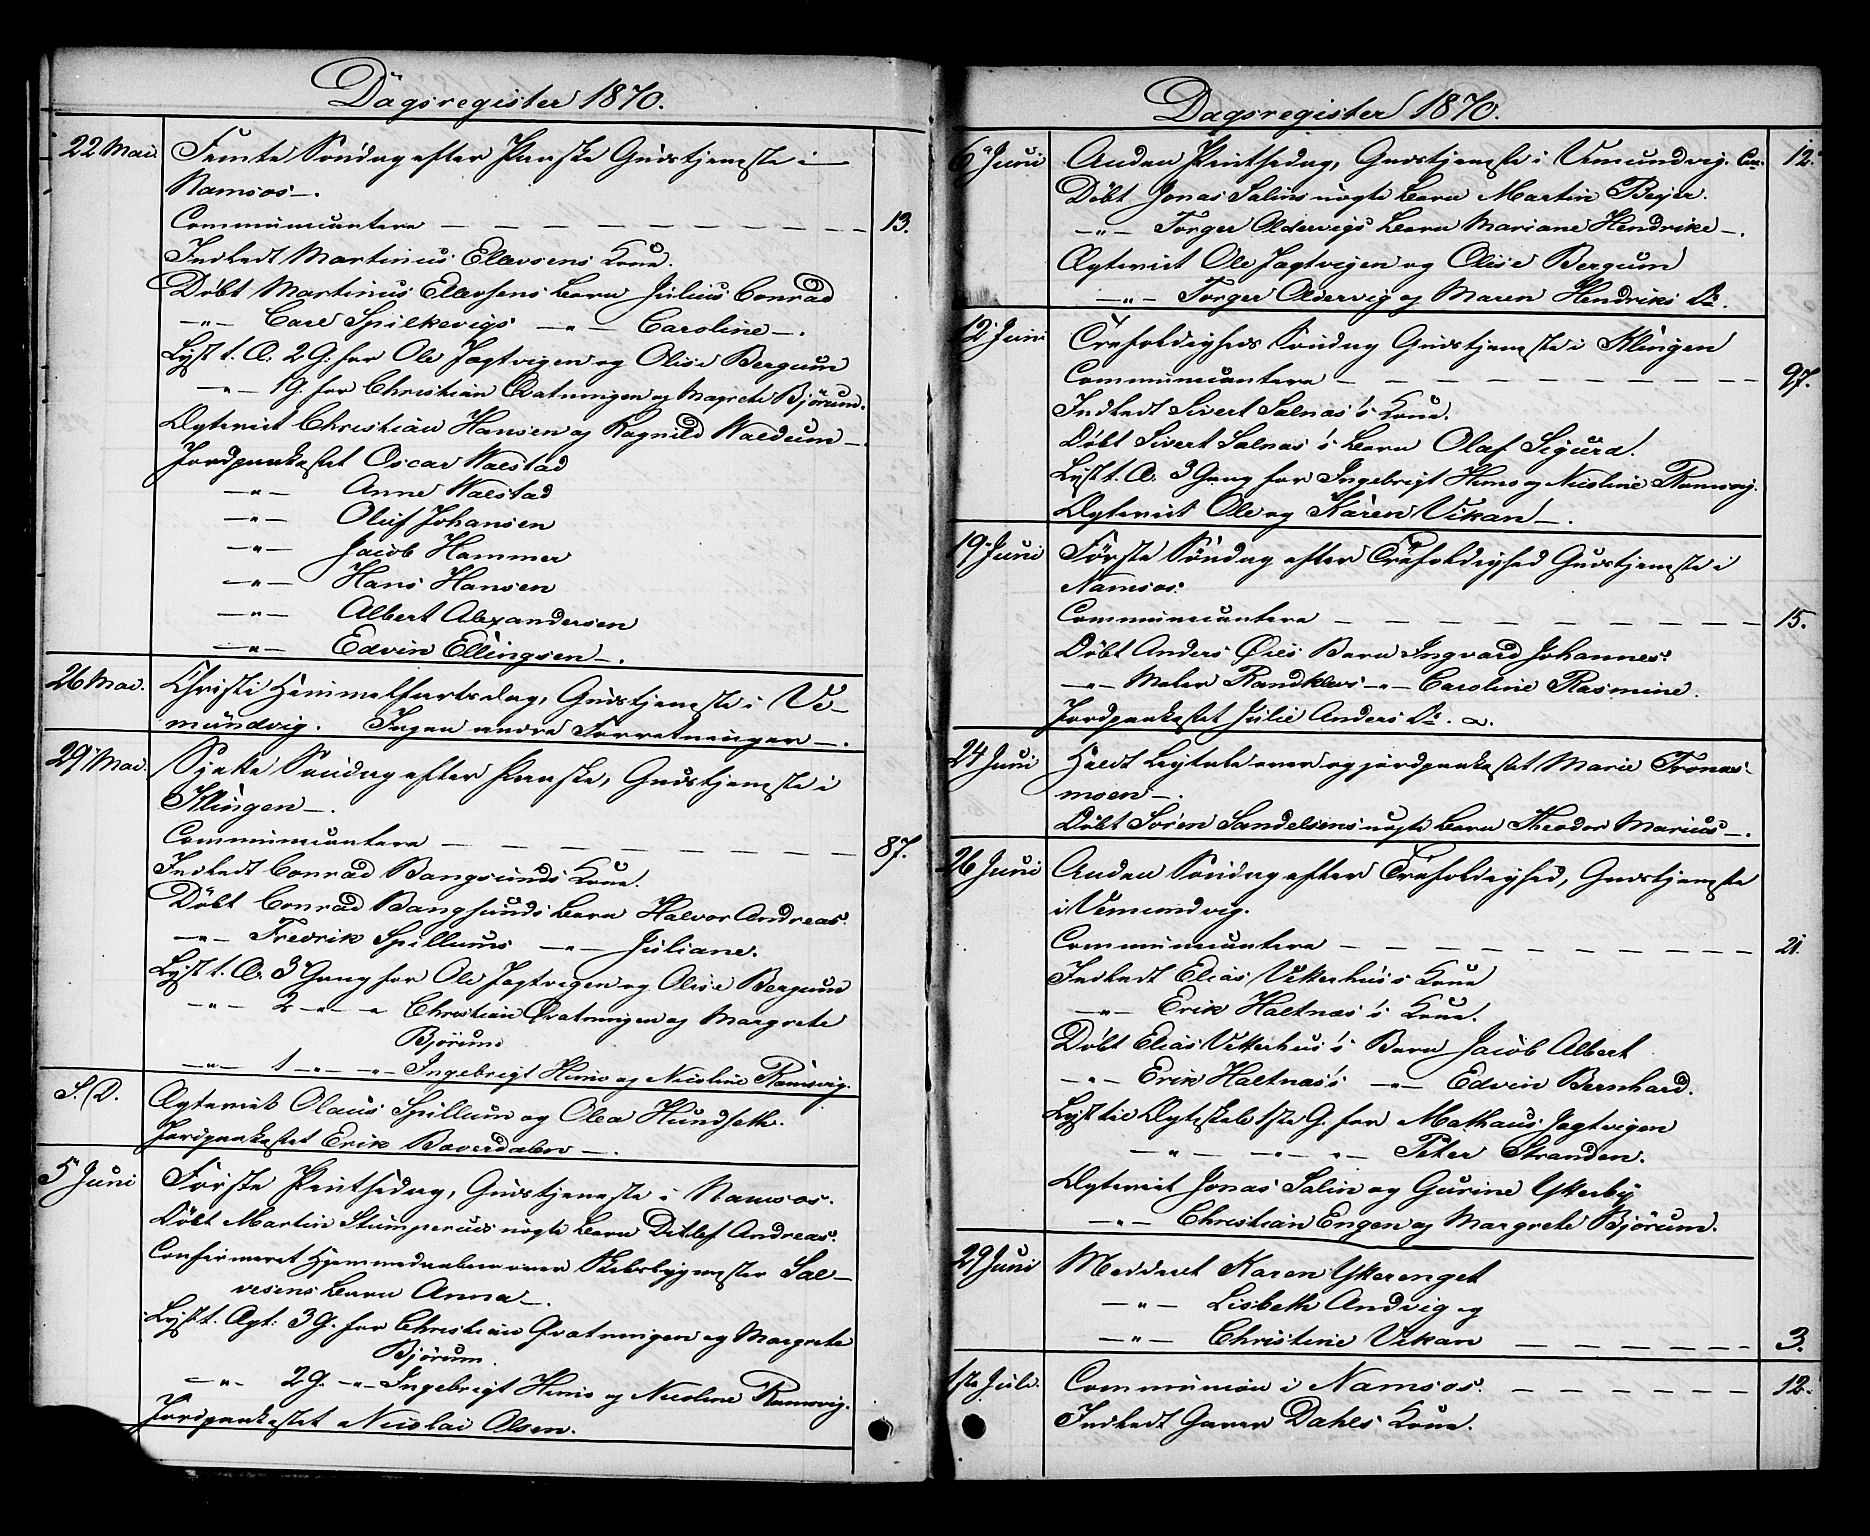 Dagsregister 1870.
22 Mai. Femte Søndag efter Paaske Gudstjeneste i
Namsos.
Communicantere 13.
Indledt Martinus Ellevsens Kone.
Døbt Martinus Ellevsens Barn Julius Conrad
—"— Carl Spilkevigs —"— Caroline.
Lyst t. Æ. 2 G. for Ole Jagtvigen og Olise Bergum
—"— 1 G. for Christian Qvatningen og Magrete Bjørum.
Ægteviet Christian Hansen og Ragnild Waldum
Jordpaakastet Oscar Walstad
—"— Anne Walstad
—"— Oluf Johansen
—"— Jacob Hammer
—"— Hans Hansen
—"— Albert Alexandersen
—"— Edvin Ellingsen.
26 Mai. Christi Himmelfartsdag, Gudstjeneste i Ve-
mundvig. Ingen andre Forretninger.
29 Mai. Sjette Søndag efter Paaske, Gudstjeneste i
Klingen.
Communicantere 87.
Indledt Conrad Bangsunds Kone.
Døbt Conrad Bangsunds Barn Halvor Andreas.
—"— Fredrik Spillums —"— Juliane.
Lyst t. Æ. 3 Gang for Ole Jagtvigen og Olise Bergum
—"— 2 —"— " Christian Qvatningen og Margrete
Bjørum
—"— 1 —"— —"— Ingebrigt Himo og Nicoline Ramsvig.
S. D. Ægteviet Olaus Spillum og Olea Hundseth.
Jordpaakastet Erik Baverdalen.
5 Juni Første Pintsedag, Gudstjeneste i Namsos.
Døbt Martin Stumperuds uægte Barn Ditlef Andreas.
Confirmeret Hjemmedøbte Skibsbygmester Sal-
vesens Barn Anna.
Lyst t. Ægt: 3 G. for Christian Qvatningen og Margrete
Bjørum.
—"— 2 G. —"— Ingebrigt Himo og Nicoline Ramsvig.
Jordpaakastet Nicolai Olsen.
Dagsregister 1870.
6 Juni Anden Pintsedag, Gudstjeneste i Vemundvig. Com. 12.
Døbt Jonas Salins uægte Barn Martin Bejer.
—"— Torger Oldervigs Barn Mariane Hendrike.
Ægteviet Ole Jagtvigen og Olise Bergum
—"— Torger Oldervig og Maren Hendriks Dr.
12 Juni Trefoldigheds Søndag Gudstjeneste i Klingen
Communicantere 97.
Indledt Sivert Salnas's Kone.
Døbt Sivert Salnas's Barn Olaf Sigurd.
Lyst t. Æ. 3 Gang for Ingebrigt Himo og Nicoline Ramsvig.
Ægteviet Ole og Karen Vikan.
19 Juni Første Søndag efter Trefoldighed Gudstjeneste i
Namsos.
Communicantere 15.
Døbt Anders Øies Barn Ingvard Johannes.
—"— Maler Randklevs —"— Caroline Rasmine.
Jordpaakastet Julie Anders Dr.
24 Juni Holdt Ligtale over og jordpaakastet Marie Tronas-
moen.
Døbt Søren Sandelsens uægte Barn Theodor Marius.
26 Juni Anden Søndag efter Trefoldighed, Gudstjeneste
i Vemundvig.
Communicantere 21.
Indledt Elias Vikterhus's Kone
—"— Erik Haltnas's Kone.
Døbt Elias Vikterhus's Barn Jacob Albert
—"— Erik Haltnas's —"— Edvin Bernhard.
Lyst til Ægteskab 1ste G. for Mathaus Jagtvigen
—"— —"— —"— Peter Stranden.
Ægteviet Jonas Salin og Gurine Ytterby
—"— Christian Engen og Margrete Bjørum.
29 Juni Meddeelt Karen Ytterenget
—"— Lisbeth Andvig og
—"— Christine Vikan 3.
1ste Juli. Communion i Namsos. 12.
Indledt Garver Dahls Kone.